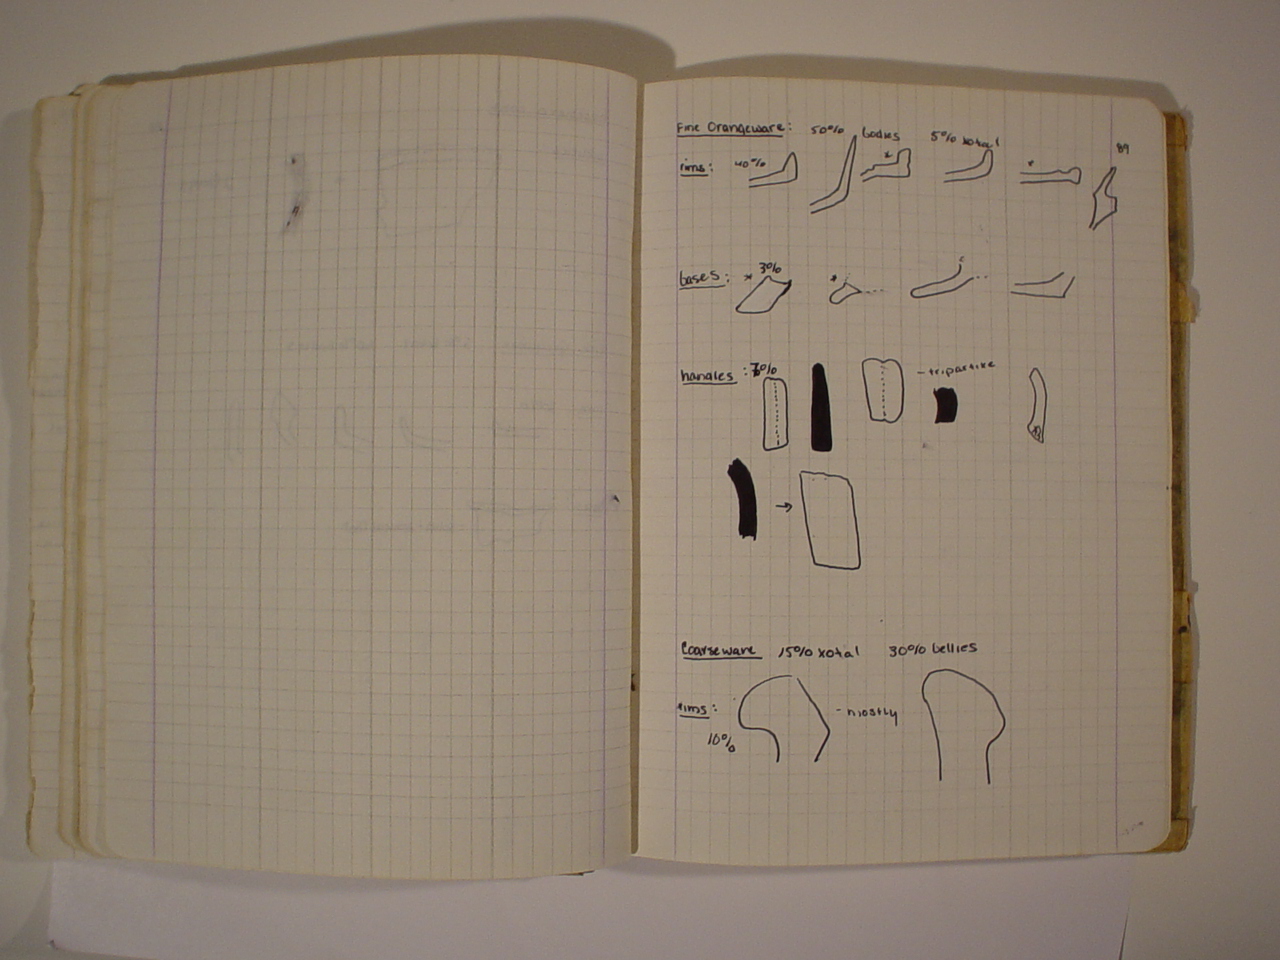 Fine Orangeware: 50% bodies 5% total
89
rims: 40%
bases: * 3%
handles: % - tripartite
Coarseware 15% total 30% bellies
rims: - mostly
10%